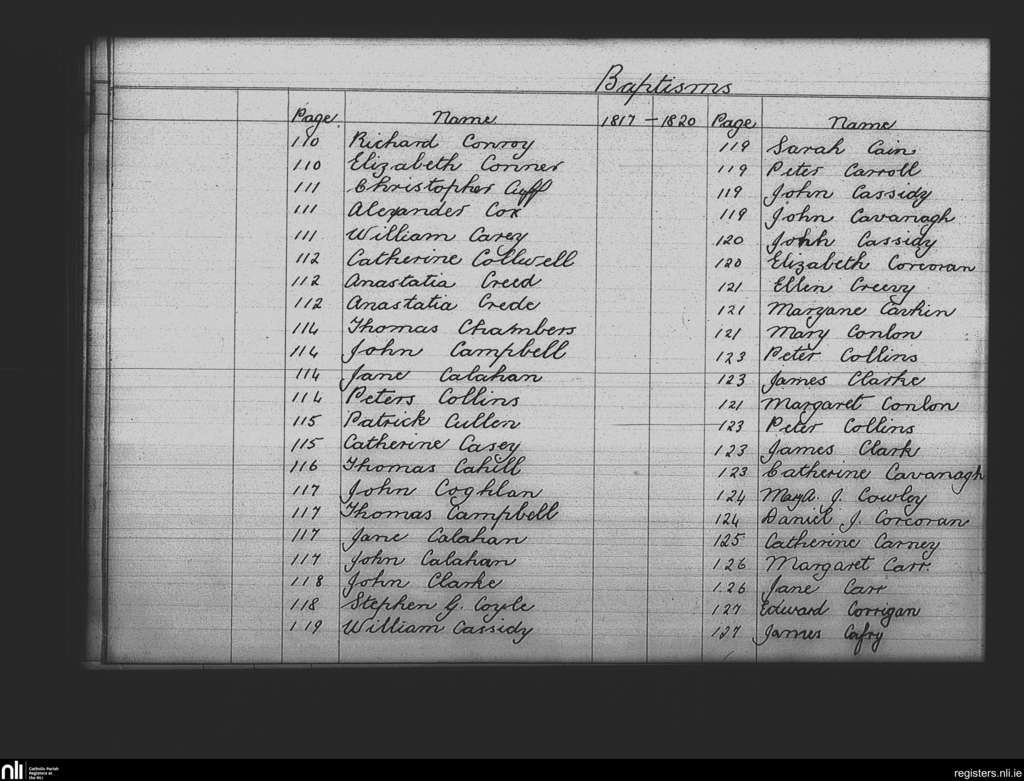 Baptisms
Page Name 1817 - 1820 Page Name
110 Richard Conroy
110 Elizabeth Conner
111 Christopher Cuff
111 Alexander Cox
111 William Carey
112 Catherine Collwell
112 Anastatia Creed
112 Anastatia Crede
114 Thomas Chambers
114 John Campbell
114 Jane Calahan
114 Peters Collins
115 Patrick Cullen
115 Catherine Casey
116 Thomas Cahill
117 John Coghlan
117 Thomas Campbell
117 Jane Calahan
117 John Calahan
118 John Clarke
118 Stephen G. Coyle
119 William Cassidy
119 Sarah Cain
119 Peter Carroll
119 John Cassidy
119 John Cavanagh
120 John Cassidy
120 Elizabeth Corcoran
121 Ellen Creevy
121 Maryane Carkin
121 Mary Conlon
123 Peter Collins
123 James Clarke
121 Margaret Conlon
123 Peter Collins
123 James Clark
123 Catherine Cavanagh
124 MaryA. J. Cowley
124 Daniel J. Corcoran
125 Catherine Carney
126 Margaret Carr.
126 Jane Carr
127 Edward Corrigan
127 James Cafry
nli Catholic Parish
Registers at
the NLI
registers.nli.ie